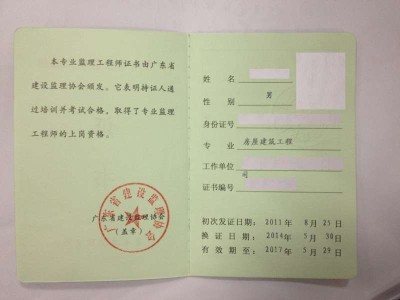 本专业监理工程师证书由广东省
建设监理协会颁发。它表明持证人通
过培训并考试合格，取得了专业监理
工程师的上岗资格。
广东省建设监理协会
广东省建设监理协会
（盖章）
姓 名
性 别 男
身份证号
专 业 房屋建筑工程
工作单位
司
证书编号
初次发证日期：2011 年 8 月 25 日
换 证 日 期：2014 年 5 月 30 日
有 效 期 至：2017 年 5 月 29 日